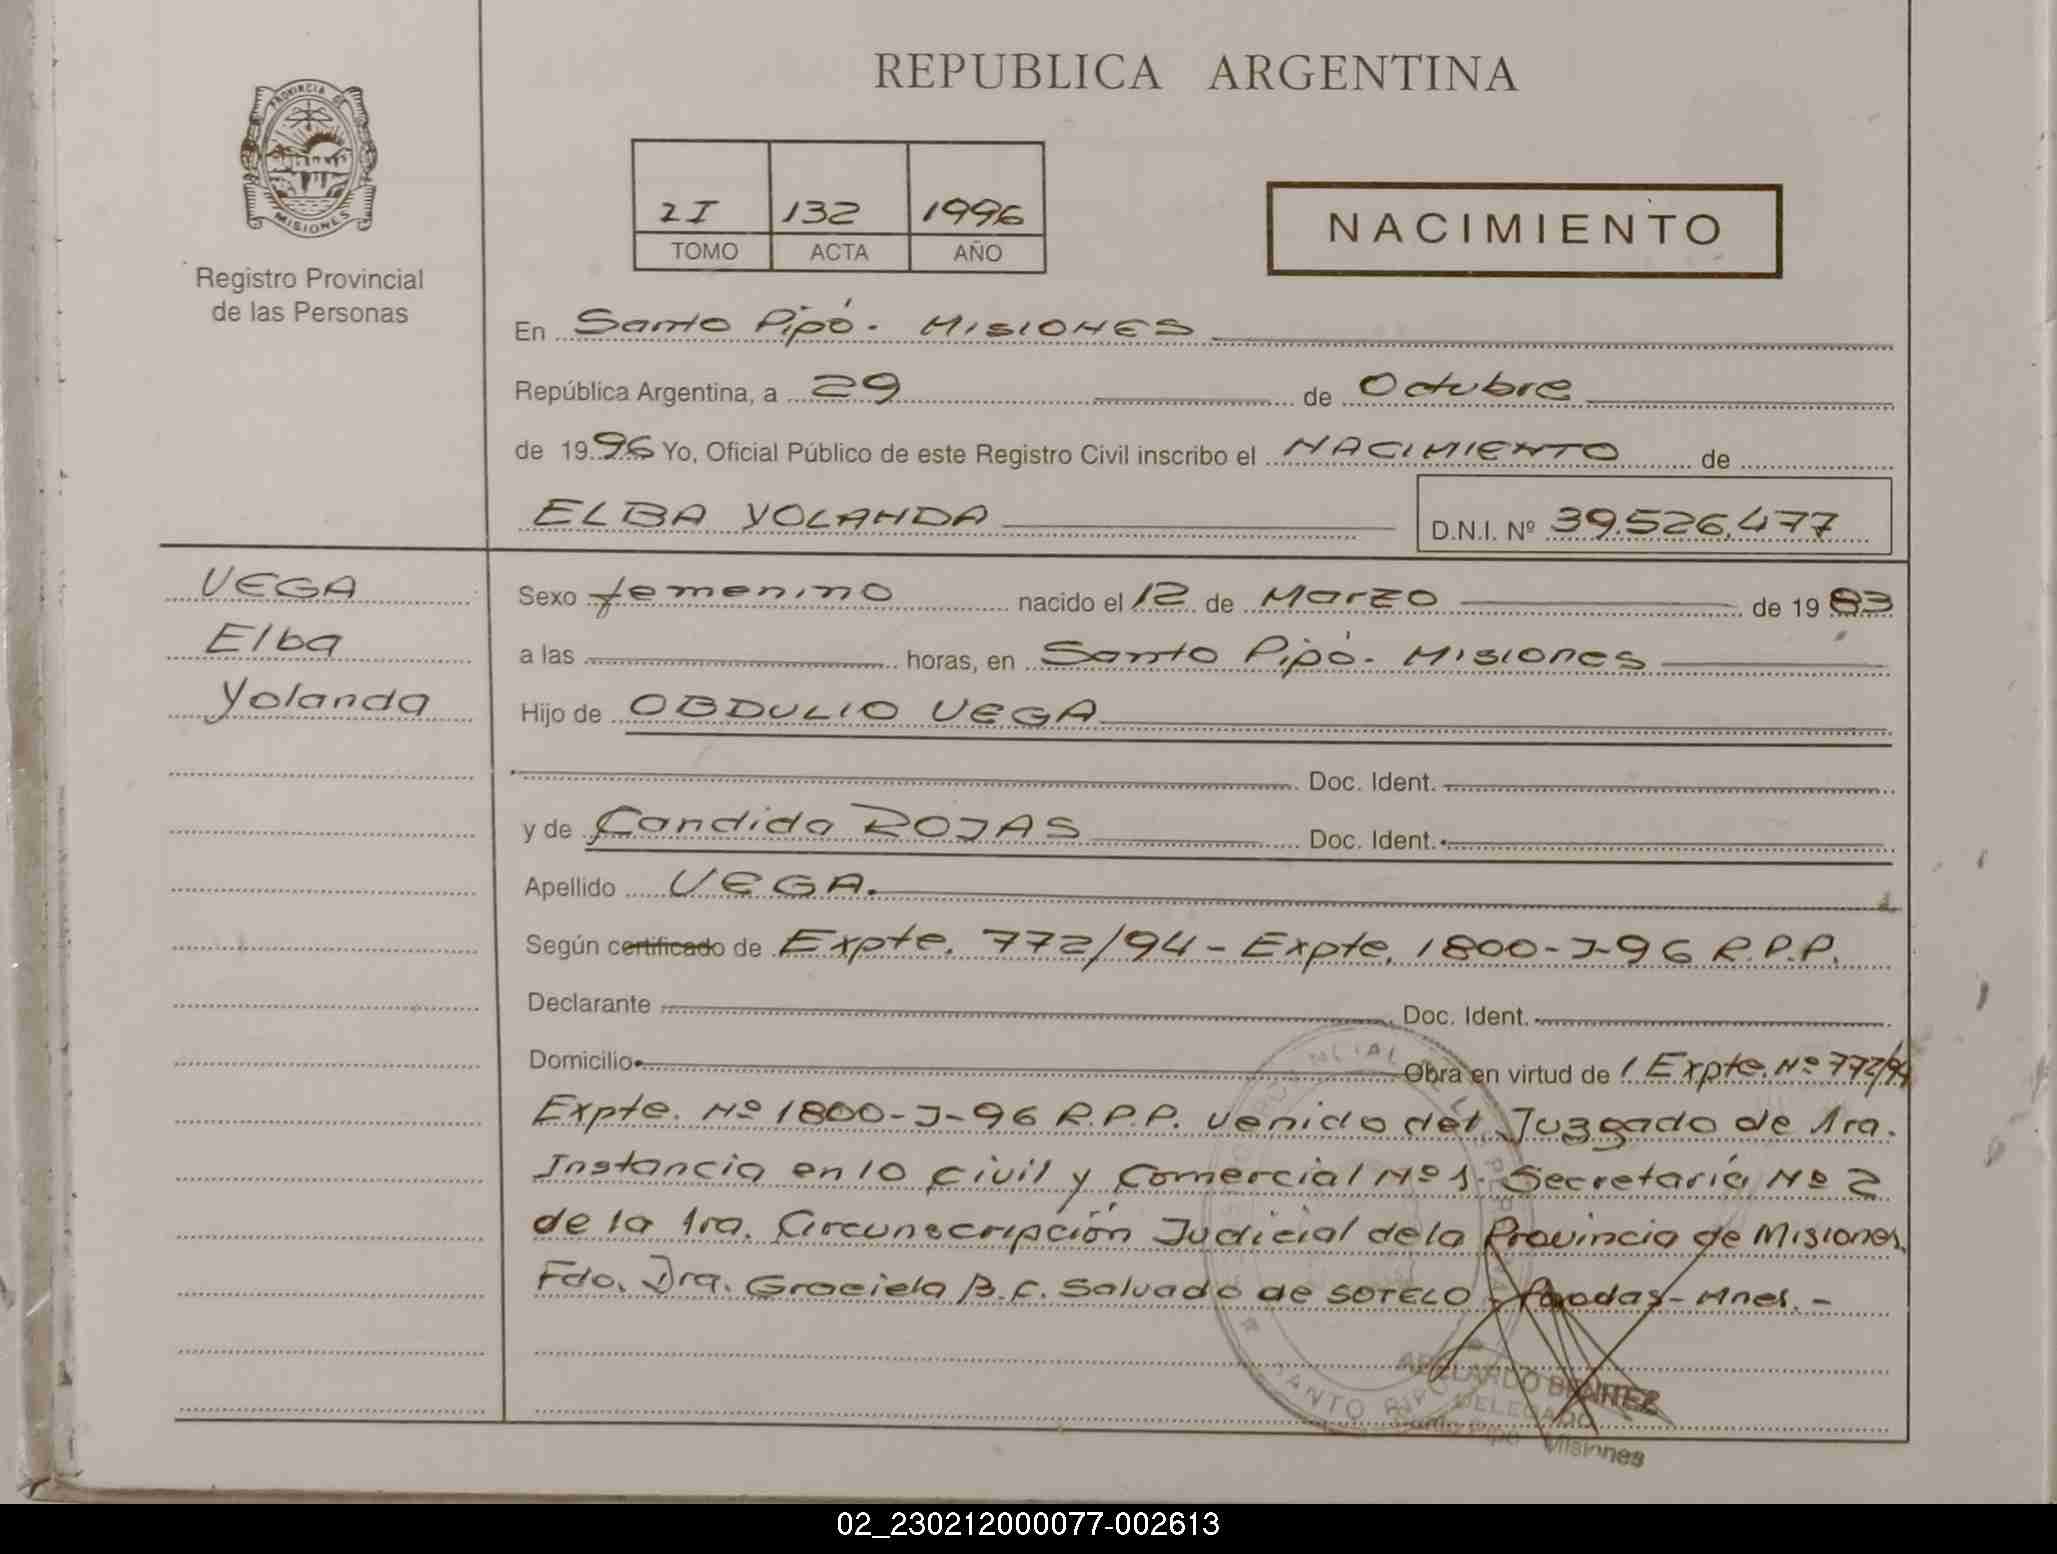 REPUBLICA ARGENTINA
PROVINCIA DE
MISIONES
Registro Provincial
de las Personas
2I 132 1996
TOMO ACTA AÑO
NACIMIENTO
En Santo Pipó. MISIONES
República Argentina, a 29 de Octubre
de 1996 Yo, Oficial Público de este Registro Civil inscribo el NACIMIENTO de
ELBA YOLANDA D.N.I. Nº 39.526.477
VEGA
Elba
Yolanda
Sexo femenino nacido el 12 de Marzo de 1983
a las horas, en Santo Pipó. Misiones
Hijo de OBDULIO VEGA
Doc. Ident.
y de Candida ROJAS Doc. Ident.
Apellido VEGA.
Según certificado de Expte. 772/94 - Expte. 1800-J-96 R.P.P.
Declarante Doc. Ident.
Domicilio Obra en virtud de Expte. Nº 772/94
Expte. Nº 1800-J-96 R.P.P. venido del Juzgado de 1ra.
Instancia en lo Civil y Comercial Nº 1. Secretaría Nº 2
de la 1ra. Circunscripción Judicial de la Provincia de Misiones.
Fdo. Dra. Graciela B. C. Salvado de SOTELO - Posadas - Mnes. -
SANTO PIPO
ABELARDO BENITEZ
DELEGADO
Santo Pipó Misiones
02_230212000077-002613